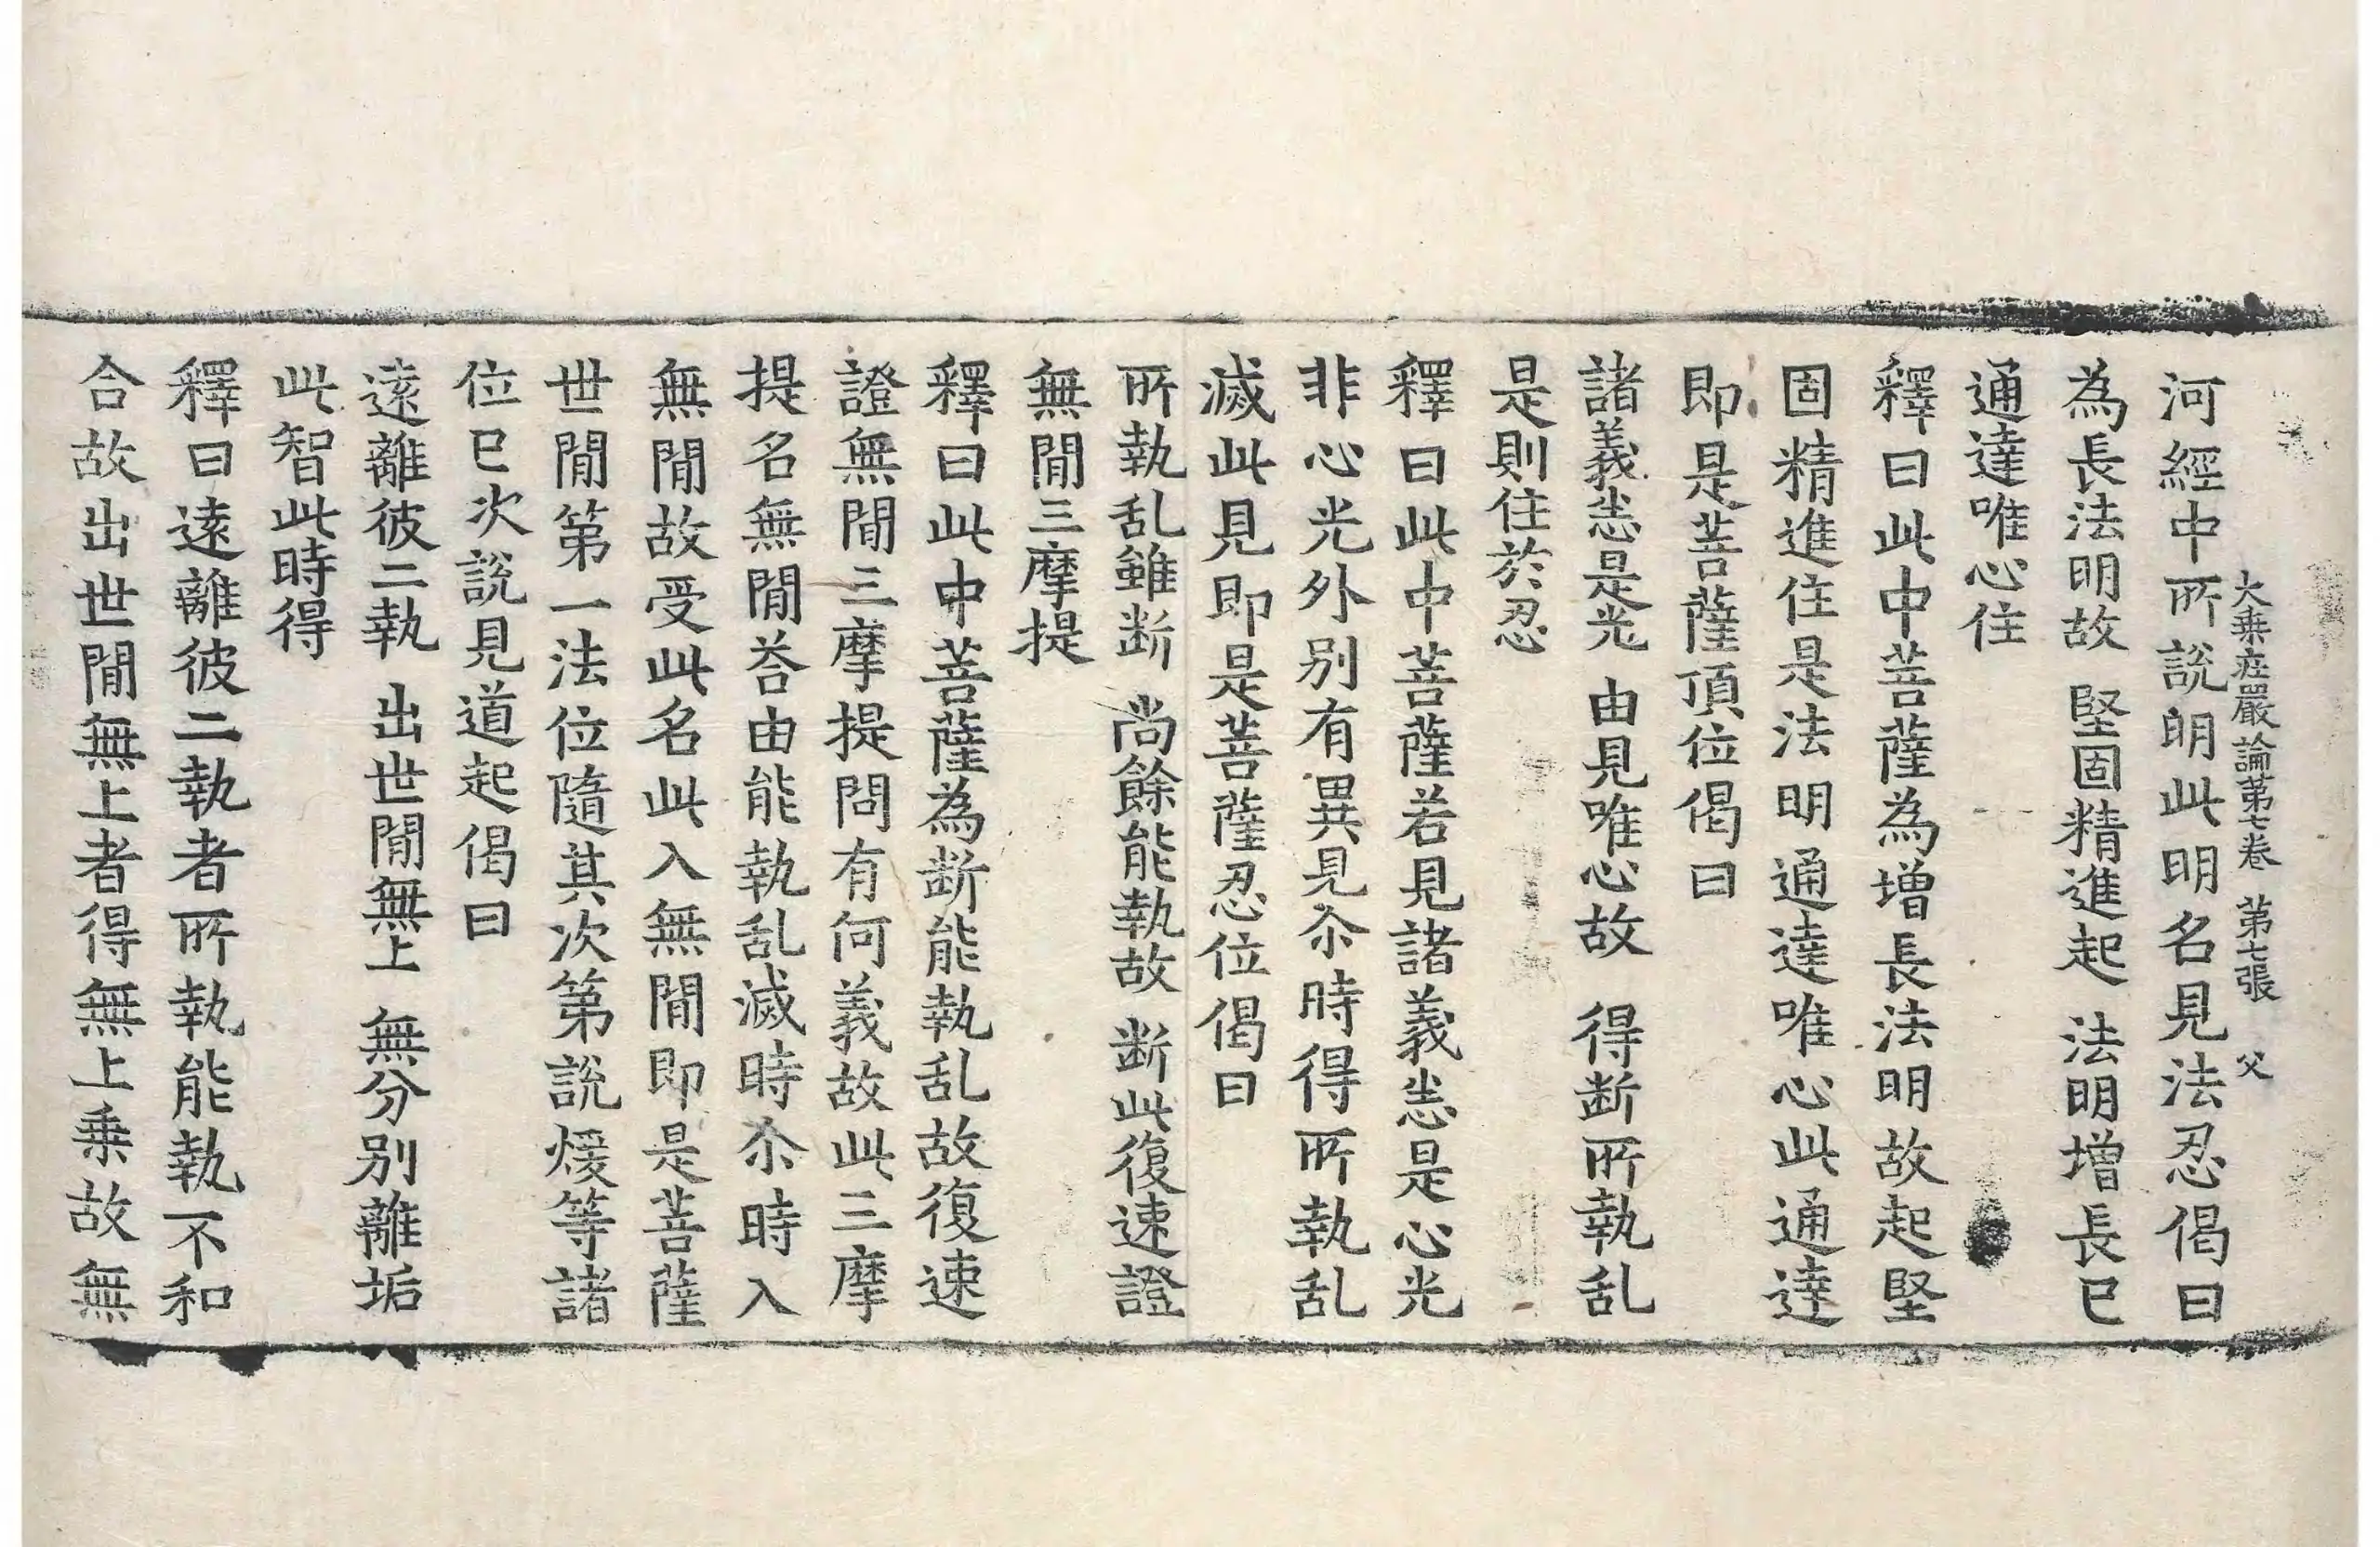 大乗庄嚴論第七卷 第七張 父
河經中所說明此明名見法忍偈曰
為長法明故 堅固精進起 法明增長已
通達唯心住
釋曰此中菩薩為增長法明故起堅
固精進住是法明通達唯心此通達
即是菩薩頂位偈曰
諸義悉是光 由見唯心故 得斷所執乱
是則住於忍
釋曰此中菩薩若見諸義悉是心光
非心光外別有異見尒時得所執乱
滅此見即是菩薩忍位偈曰
所執乱雖断 尚餘能執故 断此復速證
無閒三摩提
釋曰此中菩薩為断能執乱故復速
證無閒三摩提問有何義故此三摩
提名無閒荅由能執乱滅時尒時入
無閒故受此名此入無閒即是菩薩
世閒第一法位隨其次第說煖等諸
位已次說見道起偈曰
遠離彼二執 出世閒無上 無分別離垢
此智此時得
釋曰遠離彼二執者所執能執不和
合故出世閒無上者得無上乗故無